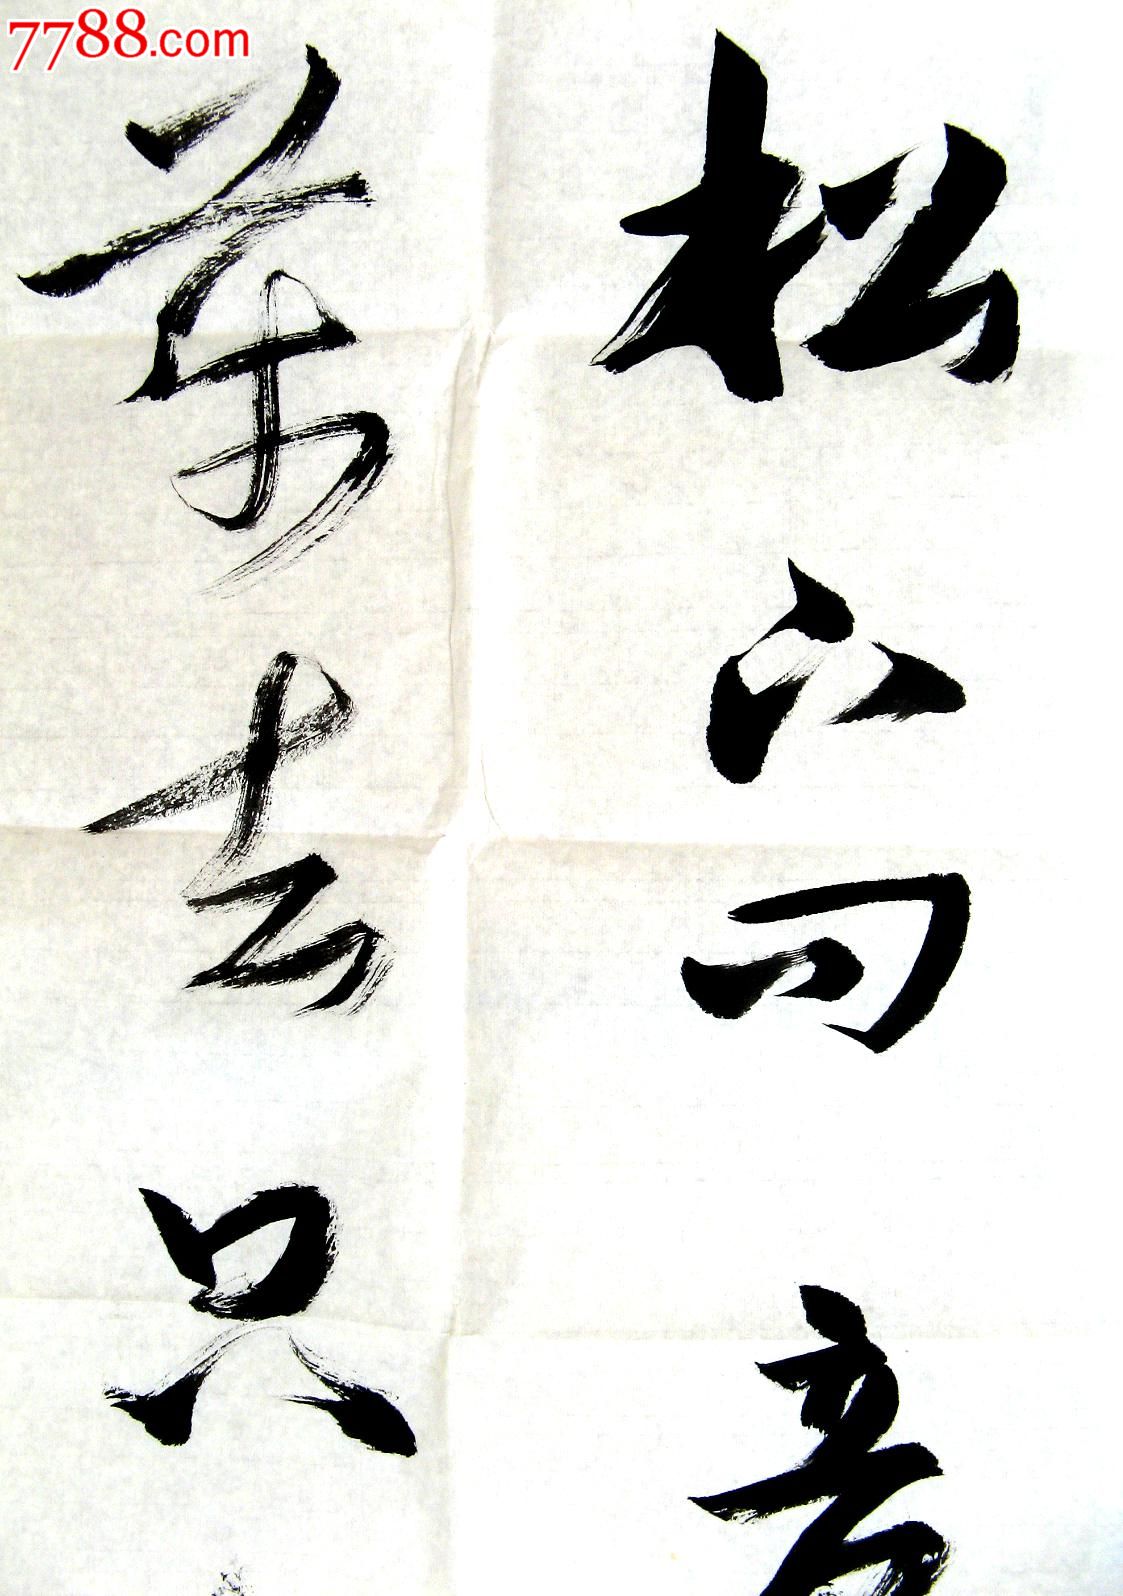 7788.com
松下问童
药去只